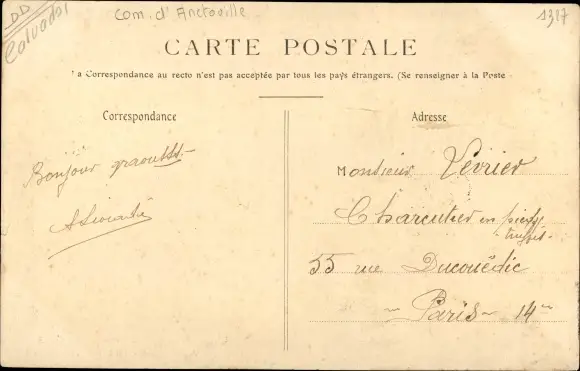 DD
Calvados
Com. d'Ancrouille
1317
CARTE POSTALE
La Correspondance au recto n'est pas acceptée par tous les pays étrangers. (Se renseigner à la Poste
Correspondance
Adresse
Bonjour
Monsieur Vévrier
Charcutier en pieds
truffés.
55 rue Ducouëdic
Paris 14